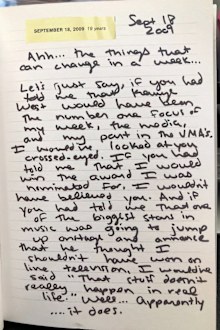 SEPTEMBER 18, 2009 19 years
Sept 18
2009
Ahh... the things that
can change in a week...
Let's just say, if you had
told me that Kanye
West would have been
the number one focus of
my week, the media,
and my part in the VMA's,
I would've looked at you
crossed-eyed. If you had
told me that I would
win the award I was
nominated for, I wouldn't
have believed you. And if
you had told me that one
of the biggest stars in
music was going to jump
up onstage and announce
that he thought I
shouldn't have won on
live television, I would've
said "That stuff doesn't
really happen in real
life." Well... apparently
....it does.